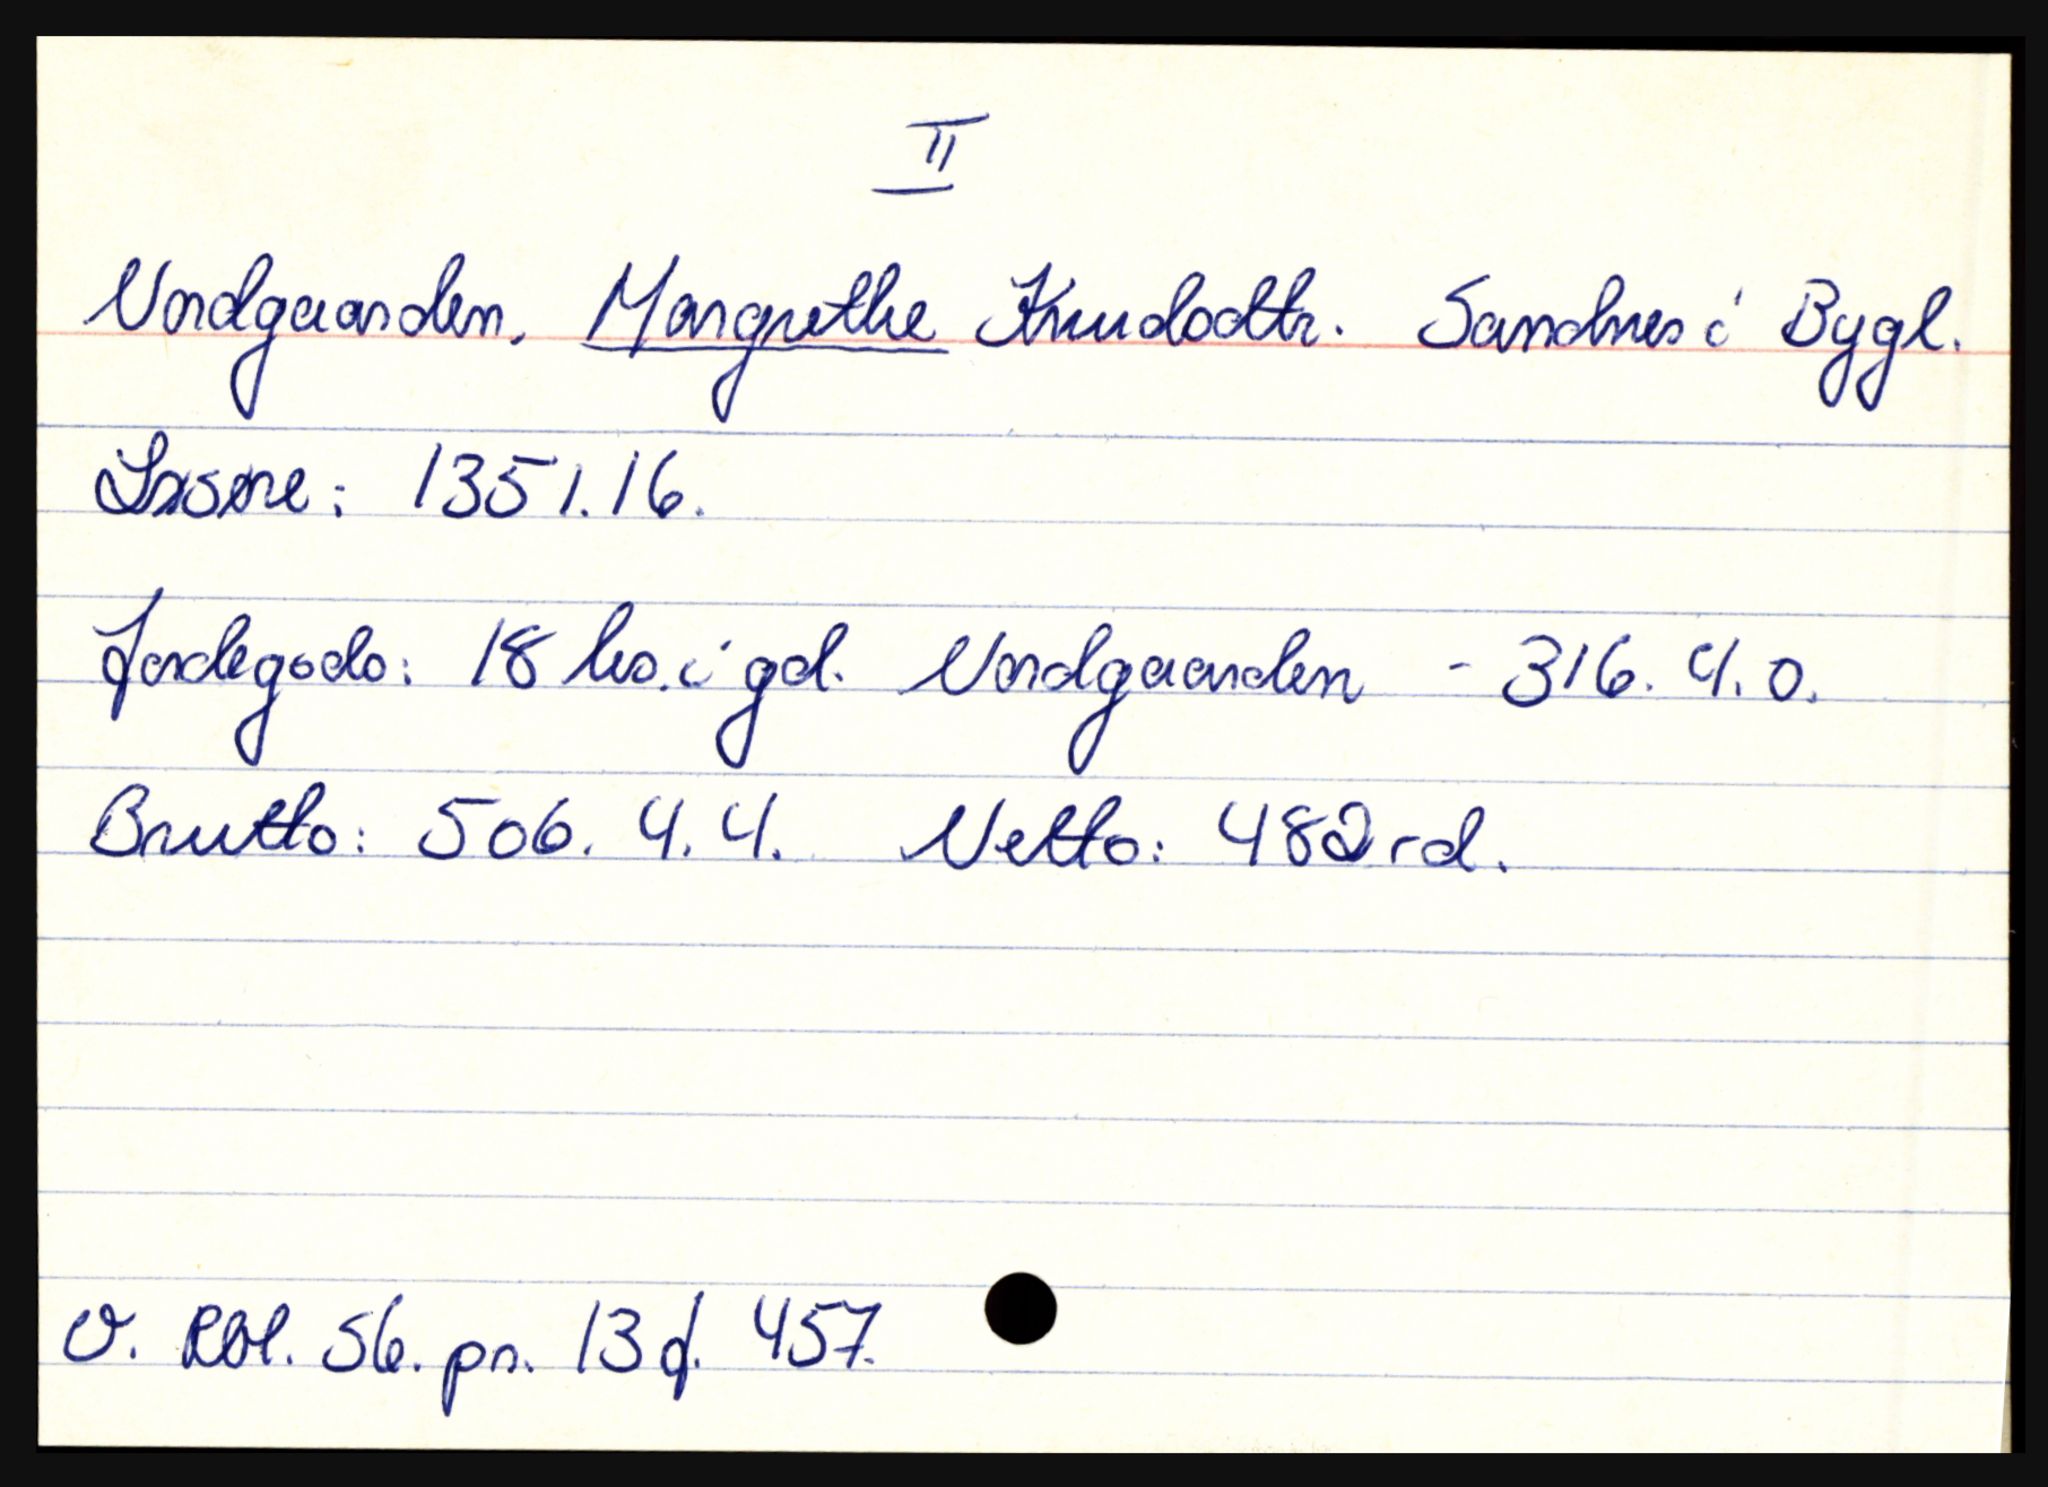 II
Nordgaarden, Margrethe Knudsdtr. Sandnes i Bygl.
Løsøre: 1351.16.
Jordegods: 18 lis. i gd. Nordgaarden - 316. 4. 0.
Brutto: 506. 4. 4. Netto: 482 rd.
V. Rbl. 56. pr. 13 f. 457.